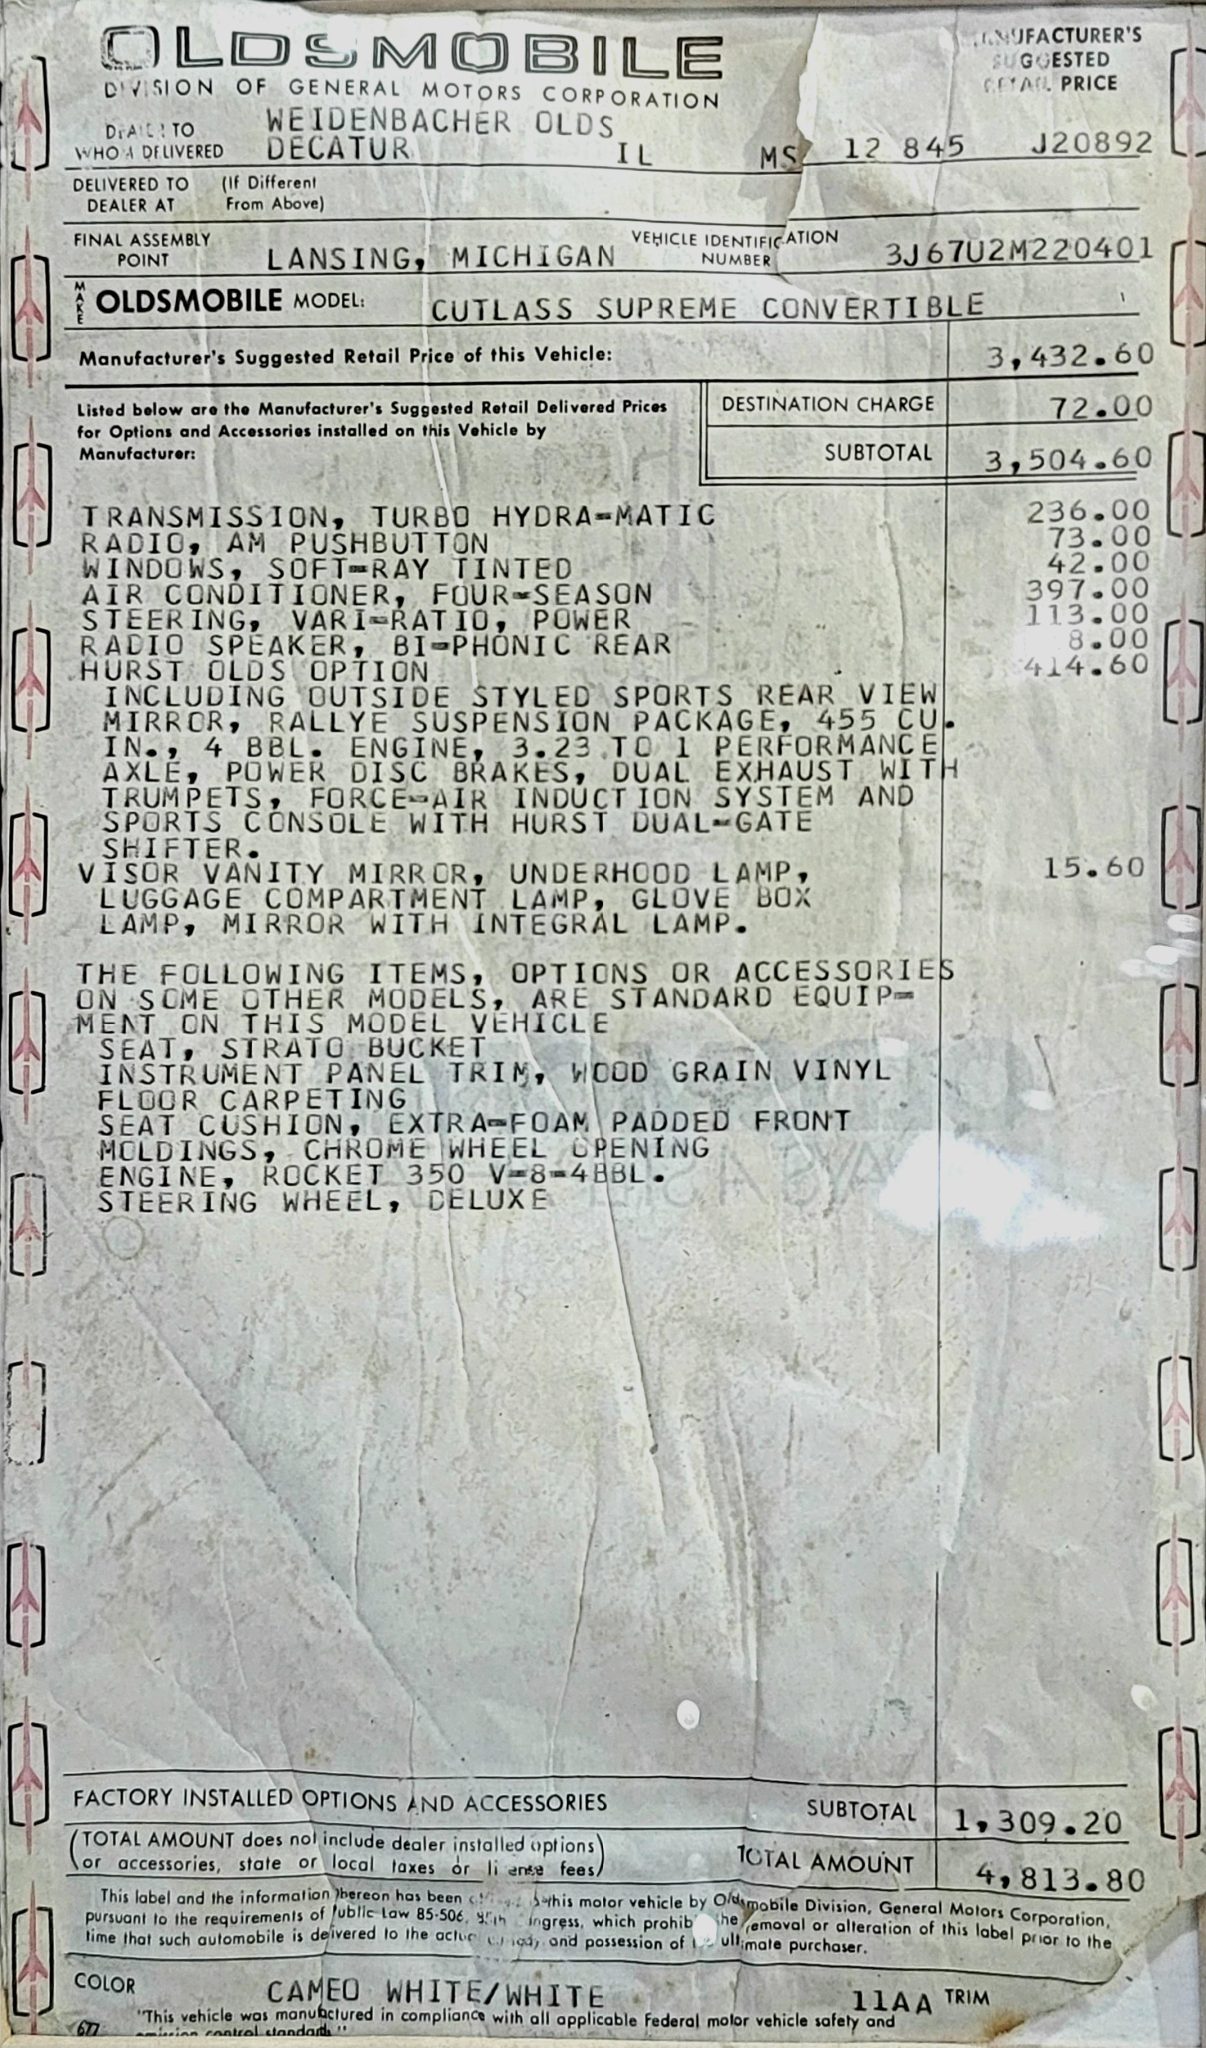 OLDSMOBILE
DIVISION OF GENERAL MOTORS CORPORATION
MANUFACTURER'S
SUGGESTED
RETAIL PRICE
DEALER TO
WHOM DELIVERED
WEIDENBACHER OLDS
DECATUR IL MS 12 845 J20892
DELIVERED TO (If Different
DEALER AT From Above)
FINAL ASSEMBLY
POINT
LANSING, MICHIGAN
VEHICLE IDENTIFICATION
NUMBER
3J67U2M220401
MAKE OLDSMOBILE MODEL: CUTLASS SUPREME CONVERTIBLE
Manufacturer's Suggested Retail Price of this Vehicle: 3,432.60
Listed below are the Manufacturer's Suggested Retail Delivered Prices
for Options and Accessories installed on this Vehicle by
Manufacturer:
DESTINATION CHARGE 72.00
SUBTOTAL 3,504.60
TRANSMISSION, TURBO HYDRA-MATIC 236.00
RADIO, AM PUSHBUTTON 73.00
WINDOWS, SOFT-RAY TINTED 42.00
AIR CONDITIONER, FOUR-SEASON 397.00
STEERING, VARI-RATIO, POWER 113.00
RADIO SPEAKER, BI-PHONIC REAR 8.00
HURST OLDS OPTION 414.60
INCLUDING OUTSIDE STYLED SPORTS REAR VIEW
MIRROR, RALLYE SUSPENSION PACKAGE, 455 CU.
IN., 4 BBL. ENGINE, 3.23 TO 1 PERFORMANCE
AXLE, POWER DISC BRAKES, DUAL EXHAUST WITH
TRUMPETS, FORCE-AIR INDUCTION SYSTEM AND
SPORTS CONSOLE WITH HURST DUAL-GATE
SHIFTER.
VISOR VANITY MIRROR, UNDERHOOD LAMP, 15.60
LUGGAGE COMPARTMENT LAMP, GLOVE BOX
LAMP, MIRROR WITH INTEGRAL LAMP.
THE FOLLOWING ITEMS, OPTIONS OR ACCESSORIES
ON SOME OTHER MODELS, ARE STANDARD EQUIP-
MENT ON THIS MODEL VEHICLE
SEAT, STRATO BUCKET
INSTRUMENT PANEL TRIM, WOOD GRAIN VINYL
FLOOR CARPETING
SEAT CUSHION, EXTRA-FOAM PADDED FRONT
MOLDINGS, CHROME WHEEL OPENING
ENGINE, ROCKET 350 V-8-4BBL.
STEERING WHEEL, DELUXE
FACTORY INSTALLED OPTIONS AND ACCESSORIES SUBTOTAL 1,309.20
(TOTAL AMOUNT does not include dealer installed options
or accessories, state or local taxes or license fees)
TOTAL AMOUNT 4,813.80
This label and the information thereon has been this motor vehicle by Oldsmobile Division, General Motors Corporation,
pursuant to the requirements of Public Law 85-506, 85th Congress, which prohibits the removal or alteration of this label prior to the
time that such automobile is delivered to the actual custody and possession of the ultimate purchaser.
COLOR CAMEO WHITE/WHITE 11AA TRIM
"This vehicle was manufactured in compliance with all applicable Federal motor vehicle safety and
677 emission control standards."